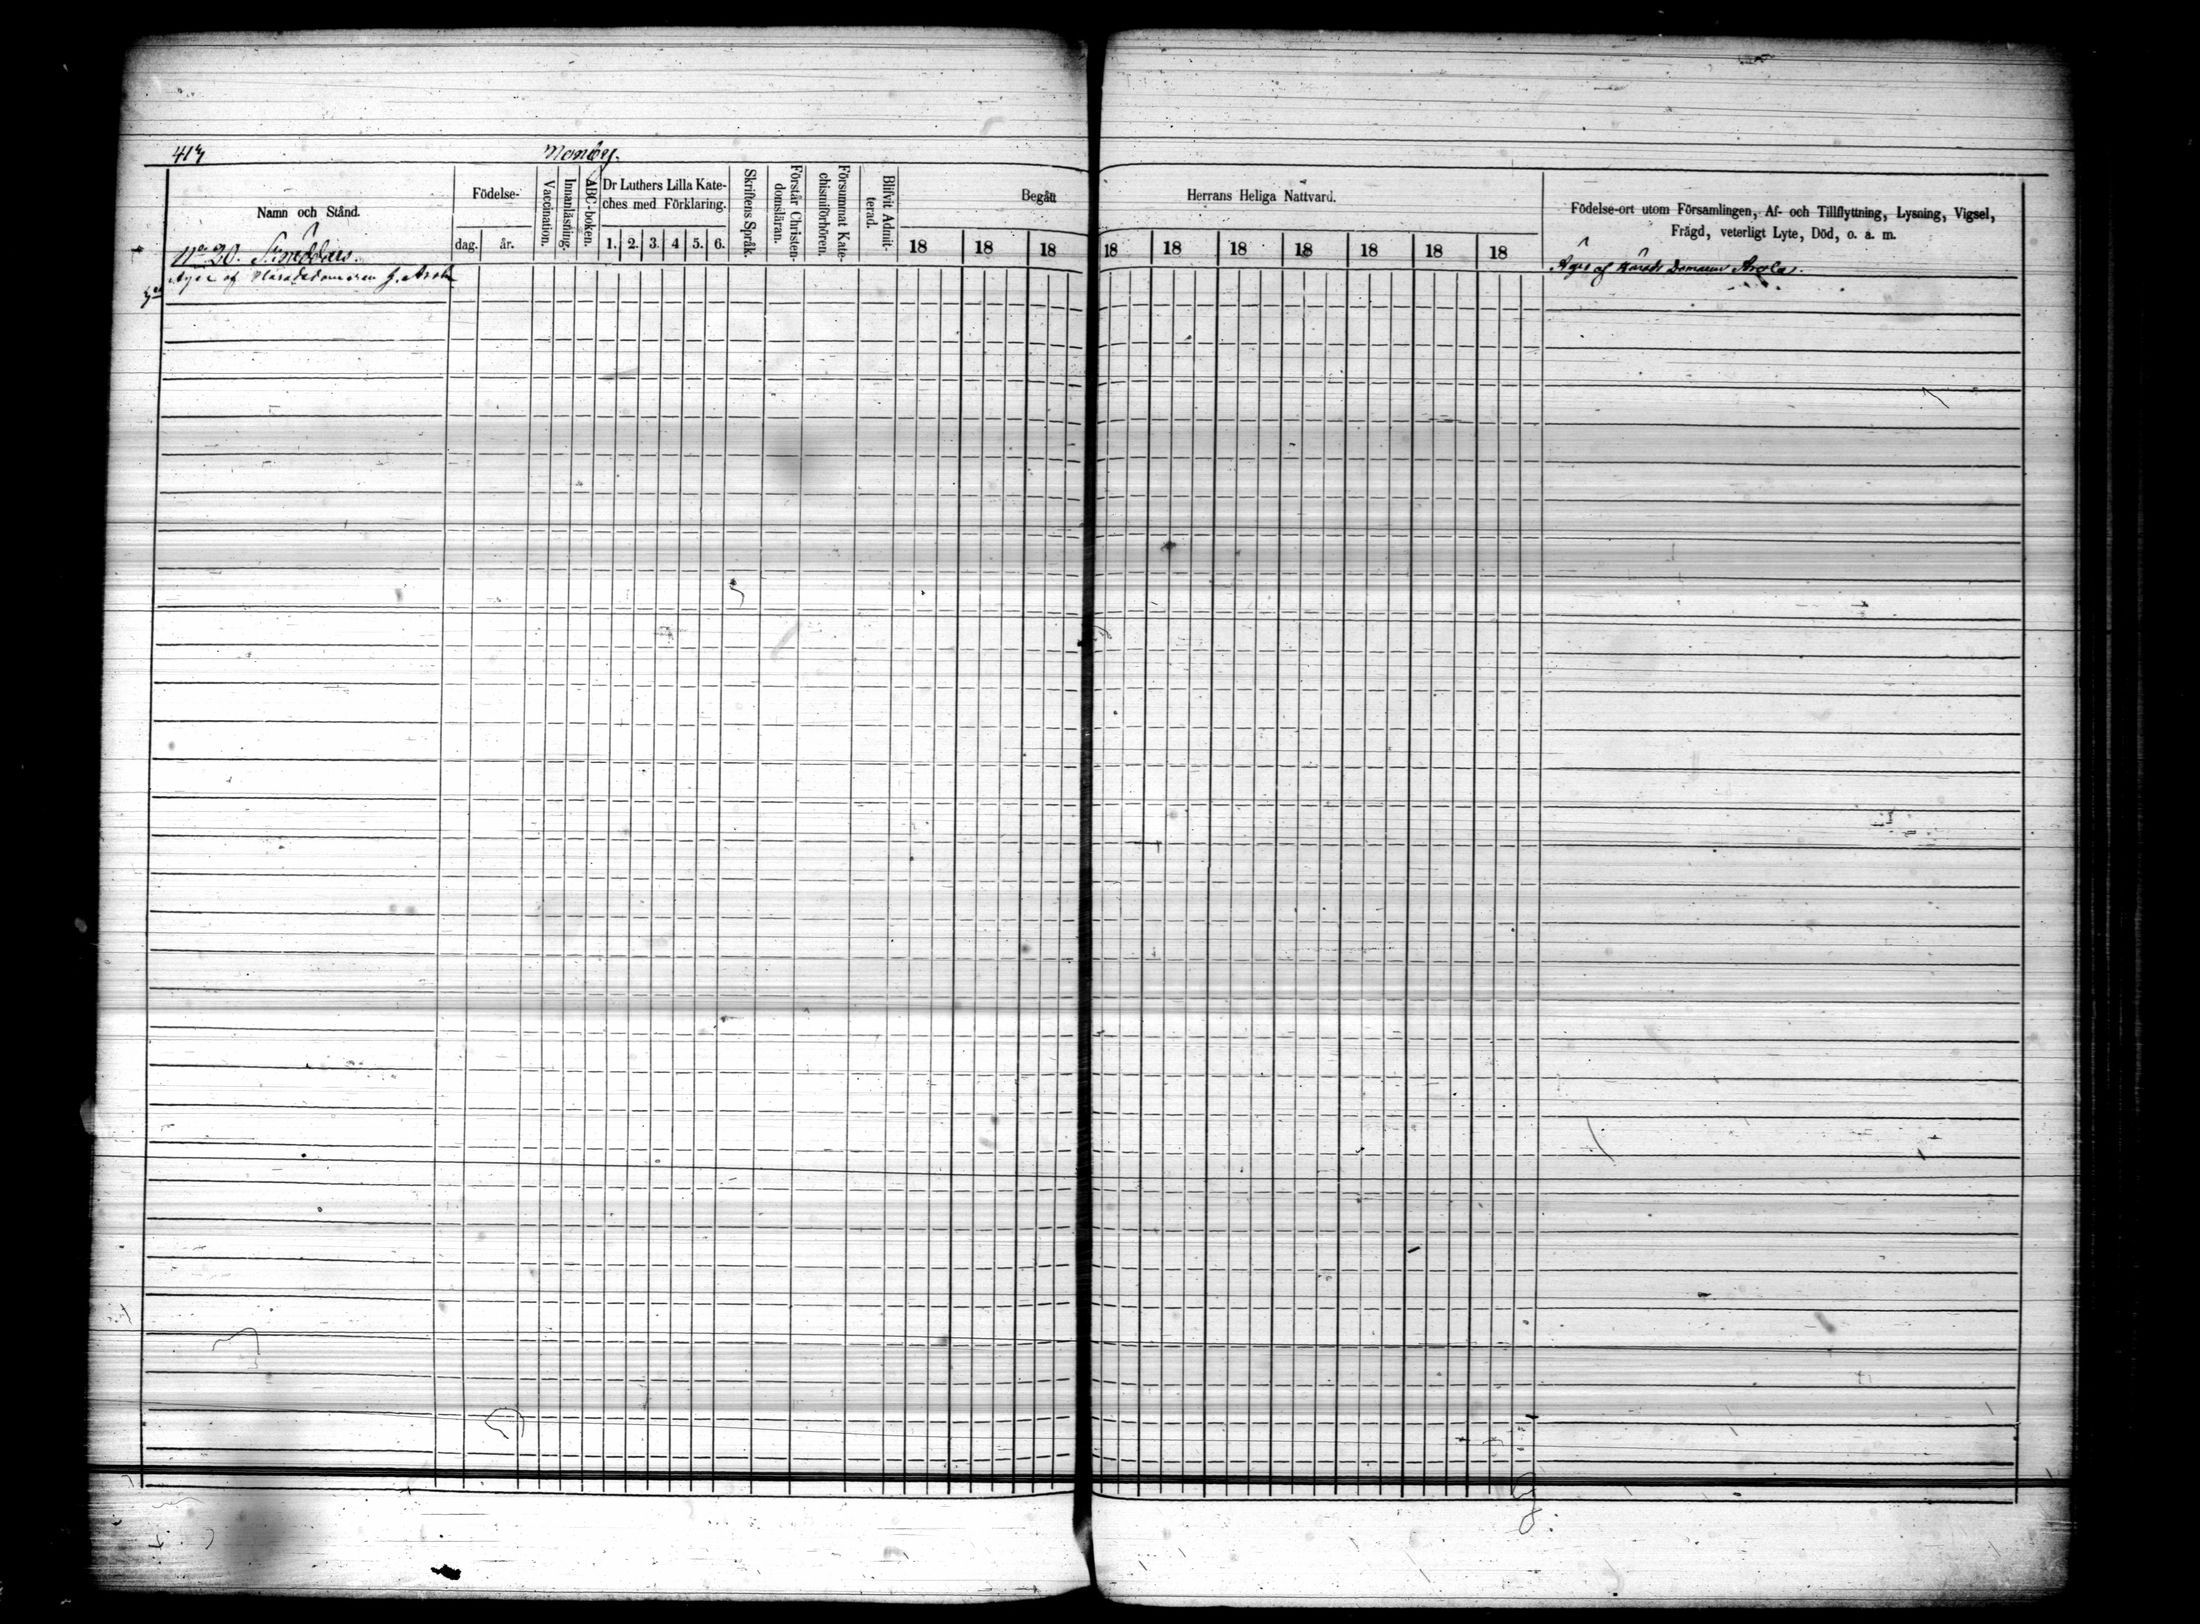 417
Monöby.
Namn och Stånd.
Födelse-
dag. år.
Vaccination.
Innanläsning.
ABC-boken.
Dr Luthers Lilla Kate-
ches med Förklaring.
1. 2. 3. 4 5. 6.
Skriftens Språk.
Förstår Christen-
domsläran.
Försummat Kate-
chismiförhören.
Blifvit Admit-
terad.
Begått Herrans Heliga Nattvard.
18 18 18 18 18 18 18 18 18 18
Födelse-ort utom Församlingen, Af- och Tillflyttning, Lysning, Vigsel,
Frägd, veterligt Lyte, Död, o. a. m.
No 20.
Äges af Häradsdomaren J. Arola
Äges af Härads Domaren Arola.